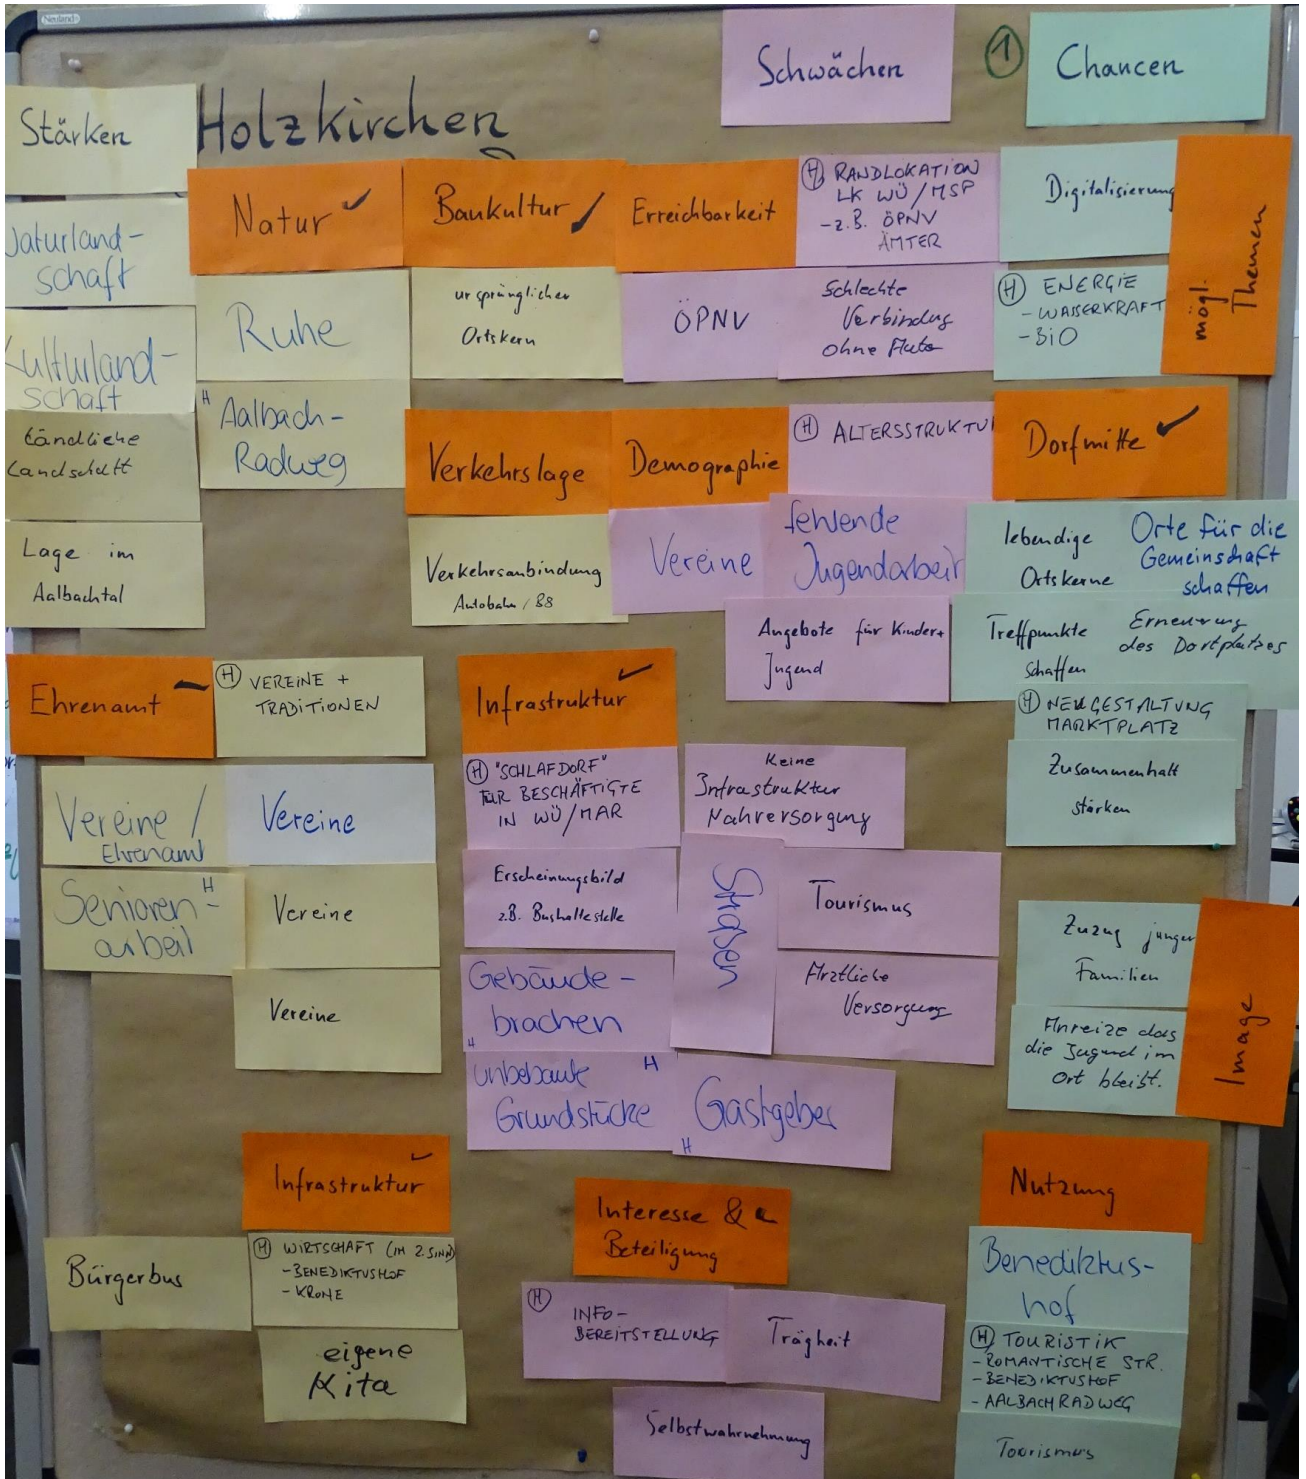 Neuland
Schwächen
1
Chancen
Stärken
Holzkirchen
Naturland-
schaft
Kulturland-
schaft
Ländliche
Landschaft
Lage im
Aalbachtal
Natur
Ruhe
H Aalbach-
Radweg
Baukultur
ursprünglicher
Ortskern
Erreichbarkeit
ÖPNV
H RANDLOKATION
LK WÜ/MSP
-z.B. ÖPNV
ÄMTER
Schlechte
Verbindung
ohne Auto
Digitalisierung
H ENERGIE
- WASSERKRAFT
- BIO
mögl.
Themen
Verkehrslage
Verkehrsanbindung
Autobahn / B8
Demographie
Vereine
H ALTERSSTRUKTU
fehlende
Jugendarbeit
Angebote für Kinder+
Jugend
Dorfmitte
lebendige
Ortskerne
Orte für die
Gemeinschaft
schaffen
Treffpunkte
schaffen
Erneuerung
des Dorfplatzes
H NEUGESTALTUNG
MARKTPLATZ
Zusammenhalt
stärken
Ehrenamt
H VEREINE +
TRADITIONEN
Vereine /
Ehrenamt
Vereine
Senioren-
arbeit
H
Vereine
Vereine
Infrastruktur
H "SCHLAFDORF"
FÜR BESCHÄFTIGTE
IN WÜ/MAR
Keine
Infrastruktur
Nahversorgung
Erscheinungsbild
z.B. Bushaltestelle
Straßen
Tourismus
Gebäude-
brachen
H
Ärztliche
Versorgung
unbebaute
Grundstücke
H
Gastgeber
H
Zuzug junger
Familien
Anreize das
die Jugend im
Ort bleibt.
Image
Infrastruktur
Bürgerbus
H WIRTSCHAFT (IM 2. SINN)
- BENEDIKTUSHOF
- KRONE
eigene
Kita
Interesse &
Beteiligung
H
INFO-
BEREITSTELLUNG
Trägheit
Selbstwahrnehmung
Nutzung
Benediktus-
hof
H TOURISTIK
- ROMANTISCHE STR.
- BENEDIKTUSHOF
- AALBACHRADWEG
Tourismus